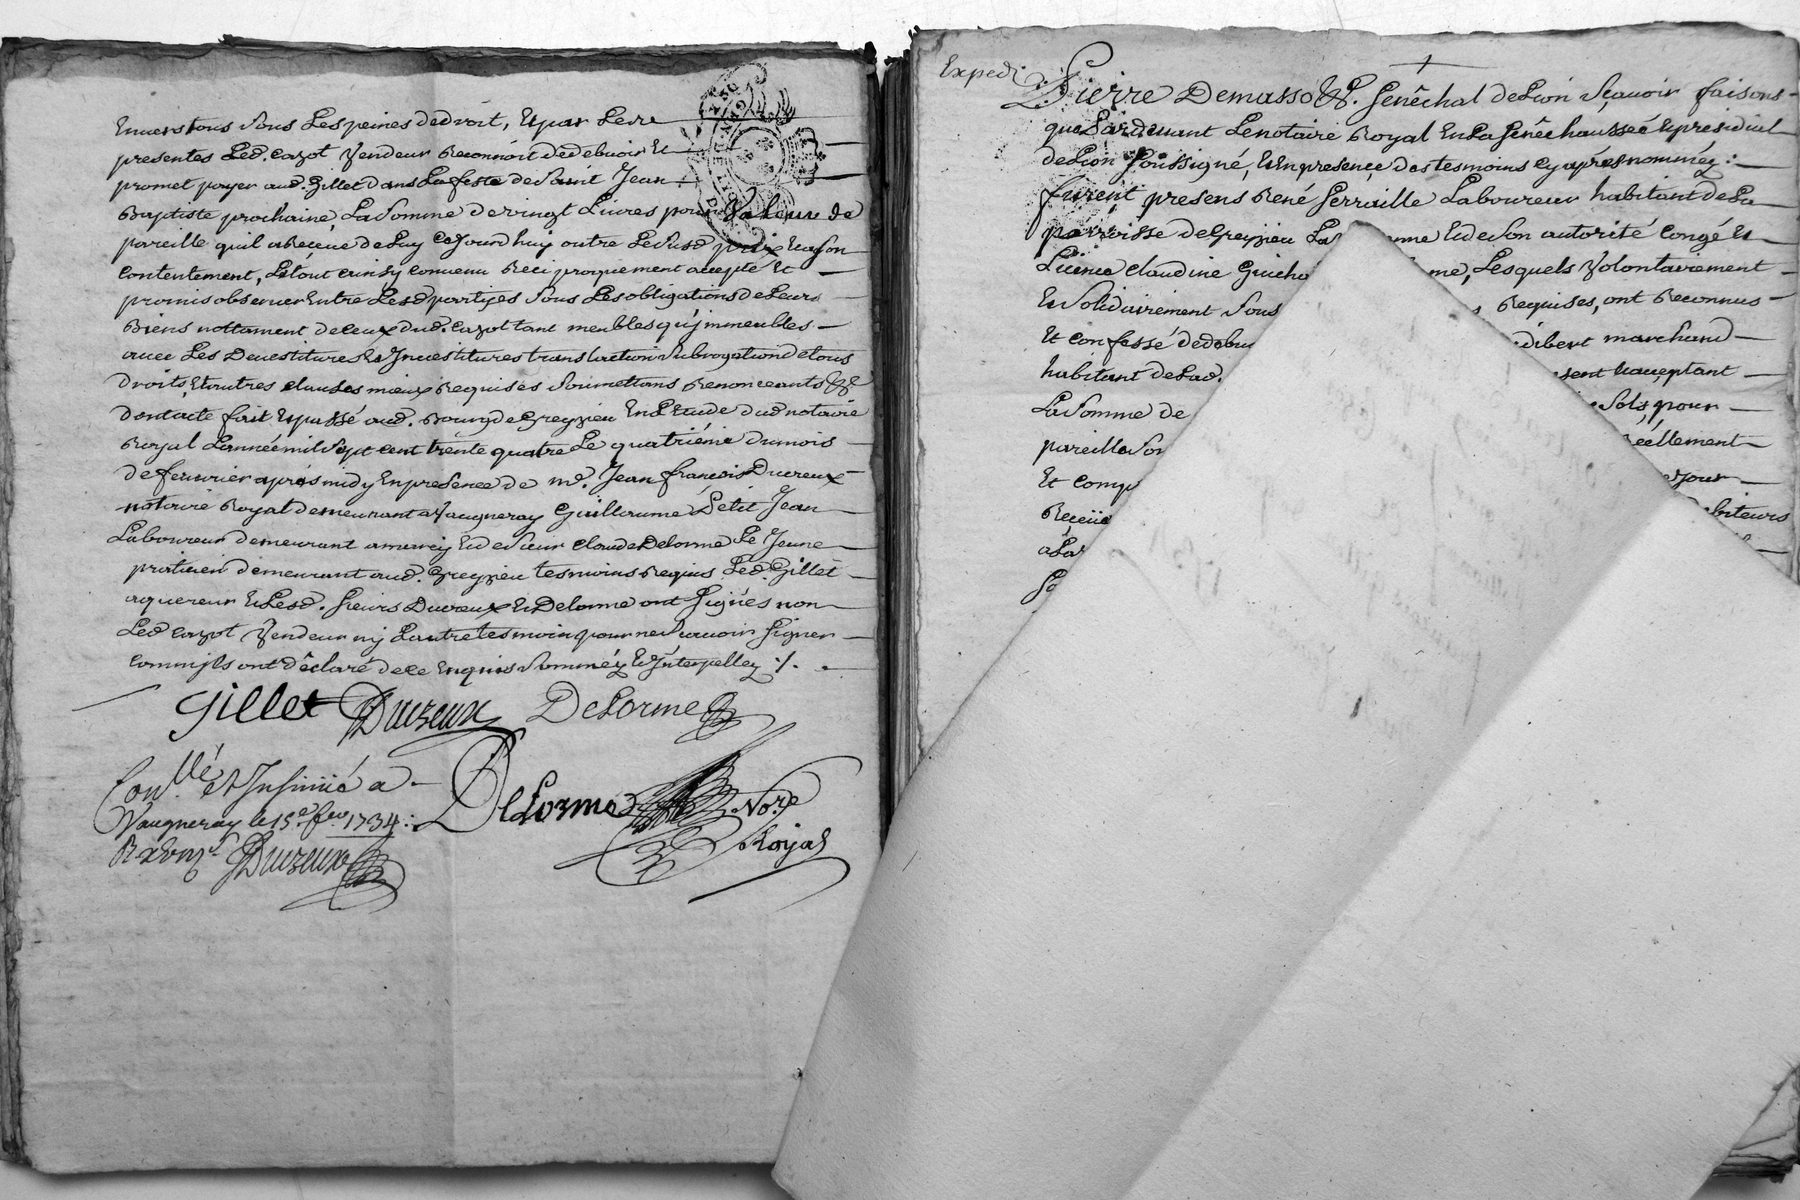 Envers tous sous Les peines de droit, Et par Les
presentes Led. Cazot Vendeur Reconnoit de debvoir Et
promet payer aud. Gillet dans La feste de Saint Jean
Baptiste prochaine, La Somme de vingt Livres pour Valeur de
pareille qu'il a Receüe de Luy Ce Jourdhuy outre Le Susd. prix Et a son
Contentement, Le tout ainsy Convenu Reciproquement accepté Et
promis observer Entre Lesd. partyes Sous Les obligations de Leurs
Biens nottament de Ceux dud. Cazot tant meubles qu'immeubles
avec Les Devestitures Investitures translaction Subrogation de tous
droits, Et autres clauses mieux Requises Soumettans Renonceants &c
dont acte fait Et passé aud. Bourg de Greyzieu En L'Etude dud notaire
Royal L'année mil Sept cent trente quatre Le quatriéme du mois
de fevrier aprés midy En presence de me. Jean françois Ducreux
notaire Royal demeurant a Vaugneray Guillaume Petit Jean
Laboureur demeurant a Et de Sieur Claude Delorme Le Jeune
praticien demeurant aud. Greyzieu tesmoins Requis Led. Gillet
aquereur Et Lesd. Sieurs Ducreux Et Delorme ont Signés non
Led Cazot Vendeur ny L'autre tesmoin pour ne Scavoir Signer
comm'ils ont déclaré de ce Enquis Sommés Et Interpellez :/.
Gillet Ducreux DeLorme
Conllé et Insinué a
Vaugneray le 15e fev 1734 :
Ducreux
DeLorme Nore
Royal
Expedi
Pierre Demasso &c. Senéchal de Lion Sçavoir faisons
que Pardevant Le notaire Royal En La Senéchaussée Et presidial
de Lion Soussigné, Et En presence des tesmoins Cy aprés nommés :
furent presens René Ferraille Laboureur habitant de La
parroisse de Greyzieu Et de Son autorité Congé Et
Licence Claudine Guicha me, Lesquels Volontairement
Et Solidairement Sous Requises, ont Reconnus
Et confessé de debv marchand
habitant de Lad. sent Et acceptant
La Somme de Sols, pour
pareille So Réellement
Et comp jour
Receüe biteurs
a La